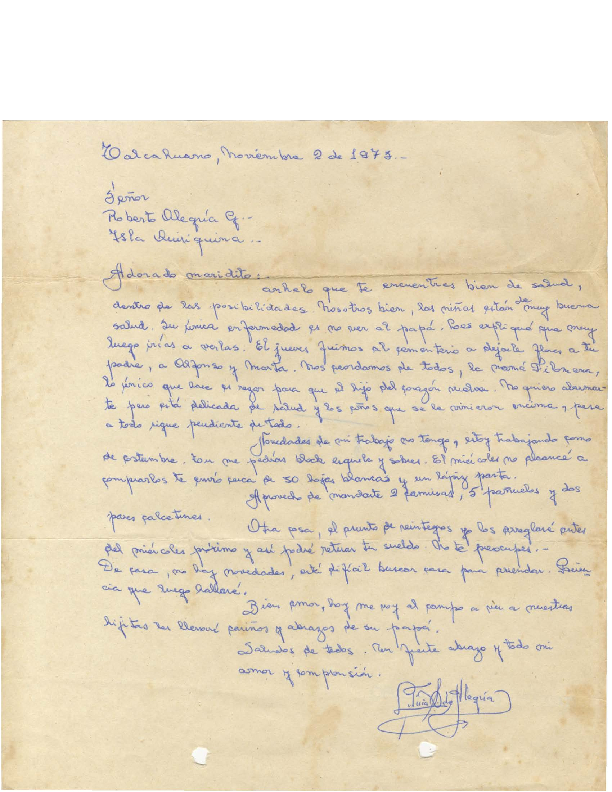 Talcahuano, Noviembre 2 de 1973.-
Señor
Roberto Alegría G.-
Isla Quiriquina.-
Adorado maridito:.
anhelo que te encuentres bien de salud,
dentro de las posibilidades. Nosotros bien, las niñas están de muy buena
salud. Su única enfermedad es no ver al papá. Les expliqué que muy
luego irías a verlas. El jueves fuimos al cementerio a dejarle flores a tu
padre, a Alfonso y Marta. Nos acordamos de todos, la mamá Filomena,
lo único que hace es rezar para que el hijo del corazón vuelva. No quiero alarmar-
te pero está delicada de salud y los años que se le vinieron encima, pese
a todo sigue pendiente de todo.
Novedades de mi trabajo no tengo, estoy trabajando como
de costumbre. Tú me pedías block esquela y sobres. El miércoles no alcancé a
comprarlos te envío cerca de 50 hojas blancas y un lápiz pasta.
Aprovecho de mandarte 2 camisas, 5 pañuelos y dos
pares calcetines.
Otra cosa, el asunto de reintegros yo los arreglaré antes
del miércoles próximo y así podré retirar tu sueldo. No te preocupes.-
De casa, no hay novedades, está difícil buscar casa para arrendar. Pacien-
cia que luego hallaré.
Bien amor, hoy me voy al campo a ver a nuestras
hijitas les llevaré cariños y abrazos de su papá.
Saludos de todos. Un fuerte abrazo y todo mi
amor y comprensión.
de Alegría